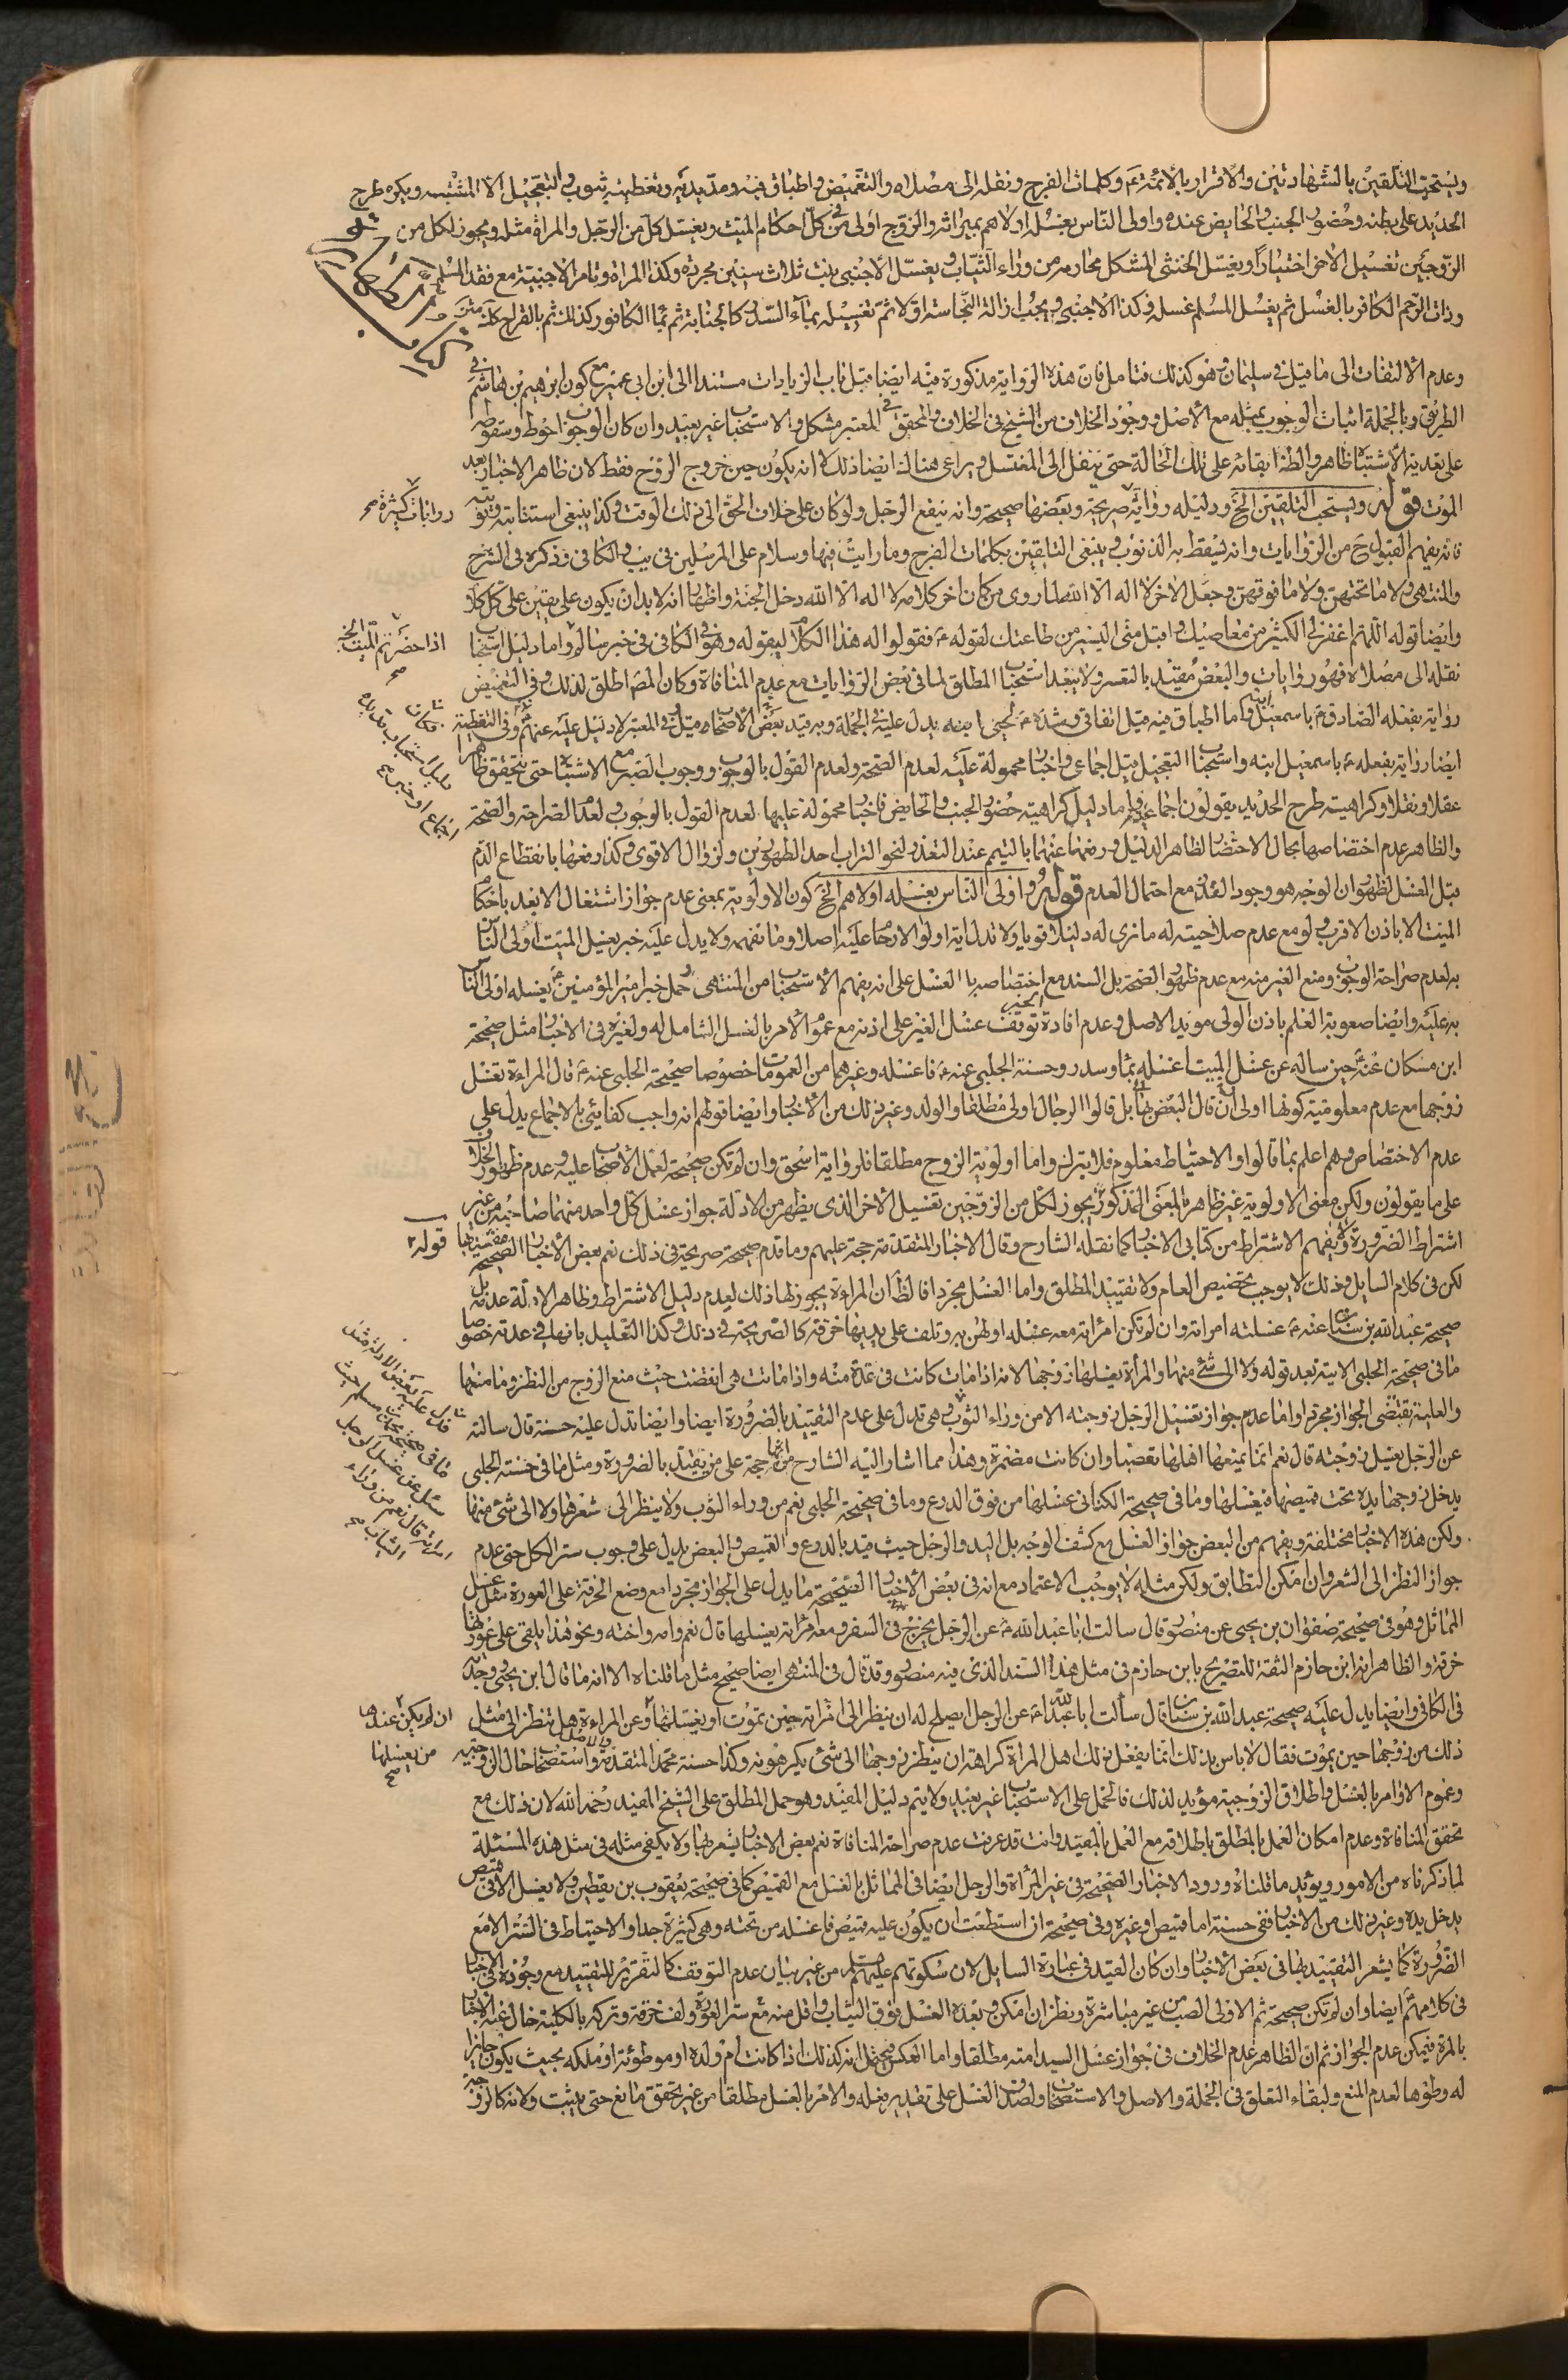 ويستحب التلقين بالشهادتين والاقرار بالائمة ع وكلمات الفرج ونقله الى مصلاه والتغميض واطباق فيه ومد يديه وتغطيته بثوب والتعجيل الا المشتبه ويكره طرح
الحديد على بطنه وحضور الجنب والحايض عنده واولى الناس بغسله اولاهم بميراثه والزوج اولى في كل احكام الميت ويغسل كل من الرجل والمراة مثله ويجوز لكل من
الزوجين تغسيل الاخر اختيارا ويغسل الخنثى المشكل محارمه من وراء الثياب ويغسل الاجنبي بنت ثلاث سنين مجردة وكذا المراة وتامر الاجنبية مع فقد المسلم
وذات الرحم الكافر بالغسل ثم يغسل المسلم غسله وكذا الاجنبي ويجب ازالة النجاسة اولا ثم تغسيله بماء السدر كالجنابة ثم بماء الكافور كذلك ثم بالقراح كذلك
كتاب الطهارة
وعدم الالتفات الى ما قيل في سليمان وهو كذلك فتامل فان هذه الرواية مذكورة فيه ايضا قبل باب الزيادات مستندا الى ابن ابي عمير مع كون ابرهيم بن هاشم في
الطريق وبالجملة اثبات الوجوب بمثله مع الاصل ووجود الخلاف من الشيخ في الخلاف والمحقق في المعتبر مشكل والاستحباب غير بعيد وان كان الوجوب احوط وسقوطه
على تقدير الاشتباه ظاهر والظ ابقائه على تلك الحالة حتى ينقل الى المغتسل ويراعى هناك ايضا ذلك لا انه يكون حين خروج الروح فقط لان ظاهر الاخبار بعد
الموت قوله ويستحب التلقين الخ ودليله رواية صريحة وبعضها صحيحة وانه ينفع الرجل ولو كان على خلاف الحق الى ذلك الوقت وكذا ينبغي استتابته وتوبته
روايات كثيرة صح
فانه يفهم القبول ح من الروايات وانه يسقط به الذنوب وينبغي التلقين بكلمات الفرج وما رايت فيها وسلام على المرسلين في يب والكافي وذكره في الشرح
والمنتهى ولا ما تحتهن ولا ما فوقهن وجعل الاخر لا اله الا الله لما روى من كان اخر كلامه لا اله الا الله دخل الجنة واظهر انه لا بد ان يكون على يقين على كل كلام
وايضا قوله اللهم اغفر لي الكثير من معاصيك واقبل مني اليسير من طاعتك لقوله ع فقولوا له هذا الكلام ليقوله وهو في الكافي في خبر سالم واما دليل استحباب
اذا حضرتم الميت الخ صح
نقله الى مصلاه فهو روايات والبعض مقيد بالتعسر ولا يبعد استحباب المطلق لما في بعض الروايات مع عدم المنافاة وكان المص اطلق لذلك وفي التغميض
رواية بفعله الصادق ع باسمعيل ابنه واما اطباق فيه قيل اتفاقي وشده ع لحيي ابنه يدل عليه في الجملة وبه قيد بعض الاصحاب ومد يديه قيل في المعتبر لا دليل عليه عنهم وفي التغطية
ايضا رواية بفعله ع باسمعيل ابنه واستحباب التعجيل قيل اجماعي واخبار محمولة عليه لعدم الصحة ولعدم القول بالوجوب ووجوب الصبر مع الاشتباه حتى يتحقق ظاهر
عقلا ونقلا وكراهية طرح الحديد يقولون اجماعي واما دليل كراهية حضور الجنب والحايض فاخبار محمولة عليها لعدم القول بالوجوب ولعدم الصراحة والصحة
والظاهر عدم اختصاصها بحال الاحتضار لظاهر الدليل ورفعها عنهما بالتيمم عند التعذر لنحو التراب احد الطهورين ولزوال الاقوى وكذا رفعها بانقطاع الدم
قبل الغسل لظهور ان الوجه هو وجود الحدث مع احتمال العدم قوله واولى الناس بغسله اولاهم الخ كون الاولوية بمعنى عدم جواز اشتغال الابعد باحكام
الميت الا باذن الاقرب ولو مع عدم صلاحيته له ما نرى له دليلا قويا ولا تدل اية اولوا الارحام عليه اصلا وما نفهمه ولا يدل عليه خبر يغسل الميت اولى الناس
به لعدم صراحة الوجوب ومنع الغير منه مع عدم ظهور الصحة بل السند مع اختصاصه بالغسل على انه يفهم الاستحباب من المنتهى وحمل خبر امير المؤمنين ع يغسله اولى الناس
به عليه وايضا صعوبة العلم باذن الولي مؤيد الاصل وعدم افادة الخبر توقف غسل الغير على اذنه مع عموم الامر بالغسل الشامل له ولغيره في الاخبار مثل صحيحة
ابن مسكان عنه ع حين ساله عن غسل الميت اغسله بماء وسدر وحسنة الحلبي عنه ع فاغسله وغيرهما من العمومات خصوصا صحيحة الحلبي عنه ع قال المراءة تغسل
زوجها مع عدم معلومية كونها اولى اذ قال البعض بها بل قالوا الرجال اولى مطلقا والولد وغير ذلك من الاخبار وايضا قولهم انه واجب كفايئ بالاجماع يدل على
عدم الاختصاص وهم اعلم بما قالوا والاحتياط معلوم فلا يترك واما اولوية الزوج مطلقا فلرواية اسحق وان لم تكن صحيحة لعمل الاصحاب عليه وعدم ظهور الخلاف
على ما يقولون ولكن معنى الاولوية غير ظاهر بالمعنى المذكور ويجوز لكل من الزوجين تغسيل الاخر الذي يظهر من الادلة جواز غسل كل واحد منهما صاحبه من غير
قوله
اشتراط الضرورة ويفهم الاشتراط من كتابي الاخبار كما نقله الشارح وقال الاخبار المتقدمة حجة عليهم وما قدم صحيحة صريحة في ذلك نعم بعض الاخبار الصحيحة مقيدة بها
لكن في كلام السايل وذلك لا يوجب تخصيص العام ولا تقييد المطلق واما الغسل مجردا فالظ ان المراءة يجوز لها ذلك لعدم دليل الاشتراط وظاهر الادلة عدمه بل
صحيحة عبد الله بن سنان عنه ع غسلته امراته وان لم تكن امراته معه غسله اولهن به وتلف على يديها خرقة كالصريحة في ذلك وكذا التعليل بانها في عدته خصوصا
ما في صحيحة الحلبي الاتية بعد قوله ولا الى شئ منها والمرأة يغسلها زوجها لانه اذا مات كانت في عدة منه واذا ماتت هي انقضت حيث منع الزوج من النظر وما منعها
والعلية تقتضي الجواز مجردا واما عدم جواز تغسيل الرجل زوجته الا من وراء الثوب وهي تدل على عدم التقييد بالضرورة ايضا وايضا تدل عليه حسنة قال سالته
فتدل عليه بعض الادلة مثل ما في صحيحة محمد بن مسلم حيث سئل عن غسل الرجل امراته قال نعم من وراء الثياب صح
عن الرجل يغسل زوجته قال نعم انما يمنعها اهلها تعصبا وان كانت مضمرة وهذا مما اشار اليه الشارح من انها حجة على من يقيد بالضرورة ومثل ما في حسنة الحلبي
يدخل زوجها يده تحت قميصها فيغسلها وما في صحيحة الكناني غسلها من فوق الدرع وما في صحيحة الحلبي نعم من وراء الثوب ولا ينظر الى شعرها ولا الى شئ منها
ولكن هذه الاخبار مختلفة ويفهم من البعض جواز الغسل مع كشف الوجه بل اليد والرجل حيث قيد بالدرع والقميص والبعض يدل على وجوب ستر الكل حتى عدم
جواز النظر الى الشعر وان امكن التطابق ولكن مثله لا يوجب الاعتماد مع انه في بعض الاخبار الصحيحة ما يدل على الجواز مجردا مع وضع الخرقة على العورة مثل غسل
المماثل وهو في صحيحة صفوان بن يحيى عن منصور قال سالت ابا عبد الله ع عن الرجل يخرج في السفر ومعه امراته يغسلها قال نعم وامه واخته ونحو هذا يلقي على عورتها
خرقة والظاهر انه ابن حازم الثقة للتصريح بابن حازم في مثل هذا السند الذي فيه منصور وقد قال في المنتهى ايضا صحيح مثل ما قلناه الا انه ما قال ابن يحيى وجدته
في الكافي وايضا يدل عليه صحيحة عبد الله بن سنان قال سألت ابا عبد الله ع عن الرجل ايصلح له ان ينظر الى امراته حين تموت او يغسلها وعن المراءة هل تنظر الى مثل
ان لم يكن عندها من يغسلها صح
ذلك من زوجها حين يموت فقال لا باس بذلك انما يفعل ذلك اهل المراة كراهة ان ينظر زوجها الى شئ يكرهونه وكذا حسنة محمد المتقدمة والاصل واستصحاب حال الزوجية
وعموم الاوامر بالغسل واطلاق الزوجية مؤيد لذلك فالحمل على الاستحباب غير بعيد ولا يتم دليل المفيد وهو حمل المطلق على الشيخ المفيد رحمه الله لان ذلك مع
تحقق المنافاة وعدم امكان العمل بالمطلق باطلاقه مع العمل بالمقيد وانت قد عرفت عدم صراحة المنافاة نعم بعض الاخبار يشعر بها ولا يكفي مثله في مثل هذه المسئلة
لما ذكرناه من الامور ويؤيد ما قلناه ورود الاخبار الصحيحة في غير المرأة والرجل ايضا في المماثل بالغسل مع القميص كما في صحيحة يعقوب بن يقطين ولا يغسل الا في قميص
يدخل يده وغير ذلك من الاخبار ففي حسنة اما قميص او غيره وفي صحيحة ان استطعت ان يكون عليه قميص فاغسله من تحته وهي كثيرة جدا والاحتياط في الستر الا مع
الضرورة كما يشعر التقييد بها في بعض الاخبار وان كان القيد في عبارة السايل لان سكوتهم عليهم السلام من غير بيان عدم التوقف كالتقرير للتقييد مع وجوده في الاخبار
في كلامهم ايضا وان لم تكن صحيحة ثم الاولى الصب من غير مباشرة ونظر ان امكن وبعده الغسل فوق الثياب واقل منه مع ستر العورة ولف خرقة وتركه بالكلية حال غيره
بالمرة فيمكن عدم الجواز ثم ان الظاهر عدم الخلاف في جواز غسل السيد امته مطلقا واما العكس فيحتمل انه كذلك اذا كانت ام ولده او موطوئة او ملكه بحيث يكون جايزا
له وطؤها لعدم المنع ولبقاء التعلق في الجملة والاصل والاستصحاب ولصدق الغسل على تقدير فعله والامر بالغسل مطلقا من غير تحقق مانع حتى يثبت ولانه كالزوجية